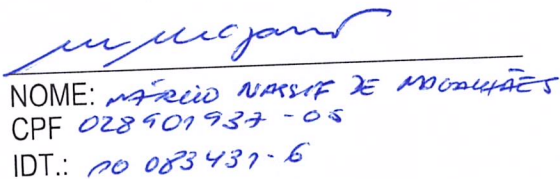 NOME: MÁRCIO NASSIF DE MAGALHÃES
CPF 028901937-05
IDT.: 10 083431-6